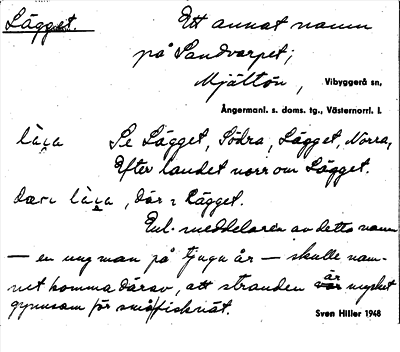 Lägget. Ett annat namn
på Sandvarpet;
Mjältön, Vibyggerå sn,
Ångermanl. s. doms. tg., Västernorrl. l.
Se Lägget, Södra, Lägget, Norra,
Efter landet norr om Lägget.
, där i Lägget.
Enl. meddelaren av detta namn
— en ung man på tjugu år — skulle nam-
net komma därav, att stranden är mycket
gynnsam för småfisknät.
Sven Hiller 1948